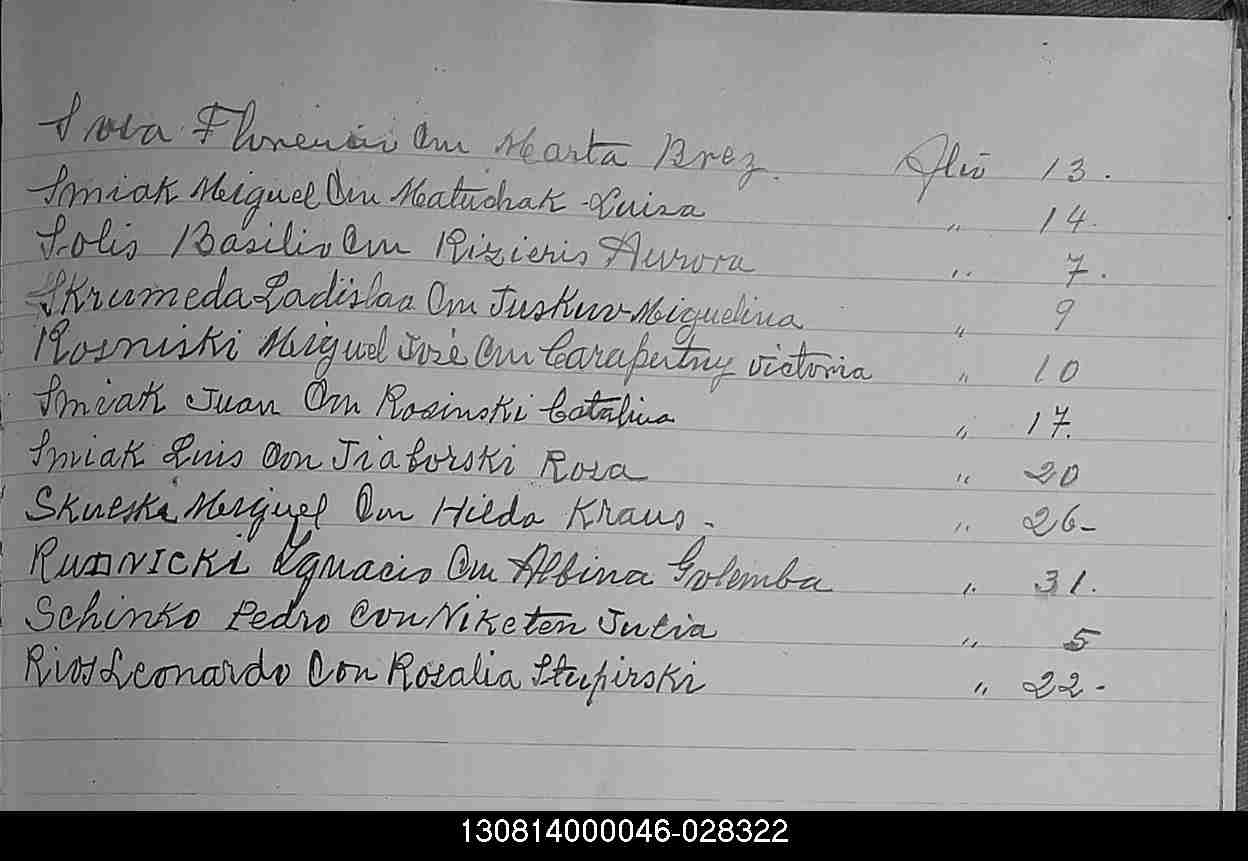 Sosa Florencio Con Marta Brez. Flio 13.
Smiak Miguel Con Matuchak Luisa " 14.
Solis Basilio Con Rizieris Aurora " 7.
Skrumeda Ladislaa Con Juskuv Miguelina " 9
Rosniski Miguel José Con Carapertny victoria " 10
Smiak Juan Con Rosinski Catalina " 17.
Smiak Luis Con Jiaborski Rosa " 20
Miguel Con Hilda Kraus. " 26-
RudNICKi Ygnacio Con Albina Golemba " 31.
Schinko Pedro Con Niketen Julia " 5
Rios Leonardo Con Rosalia Stupirski " 22-
130814000046-028322